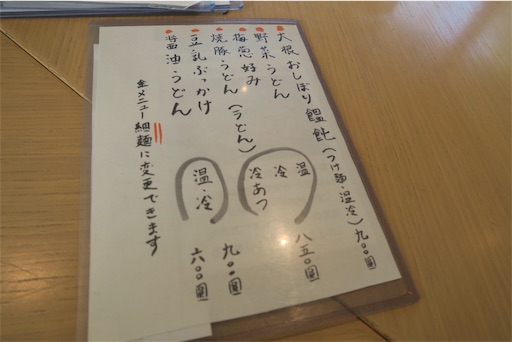 大根おしぼり饂飩(つけ麺・温冷)九〇〇圓
野菜うどん 温
梅葱好み(うどん) 冷 八五〇圓
焼豚うどん 冷あつ
豆乳ぶっかけ 九〇〇圓
醤油うどん 温・冷 六〇〇圓
全メニュー細麺に変更できます